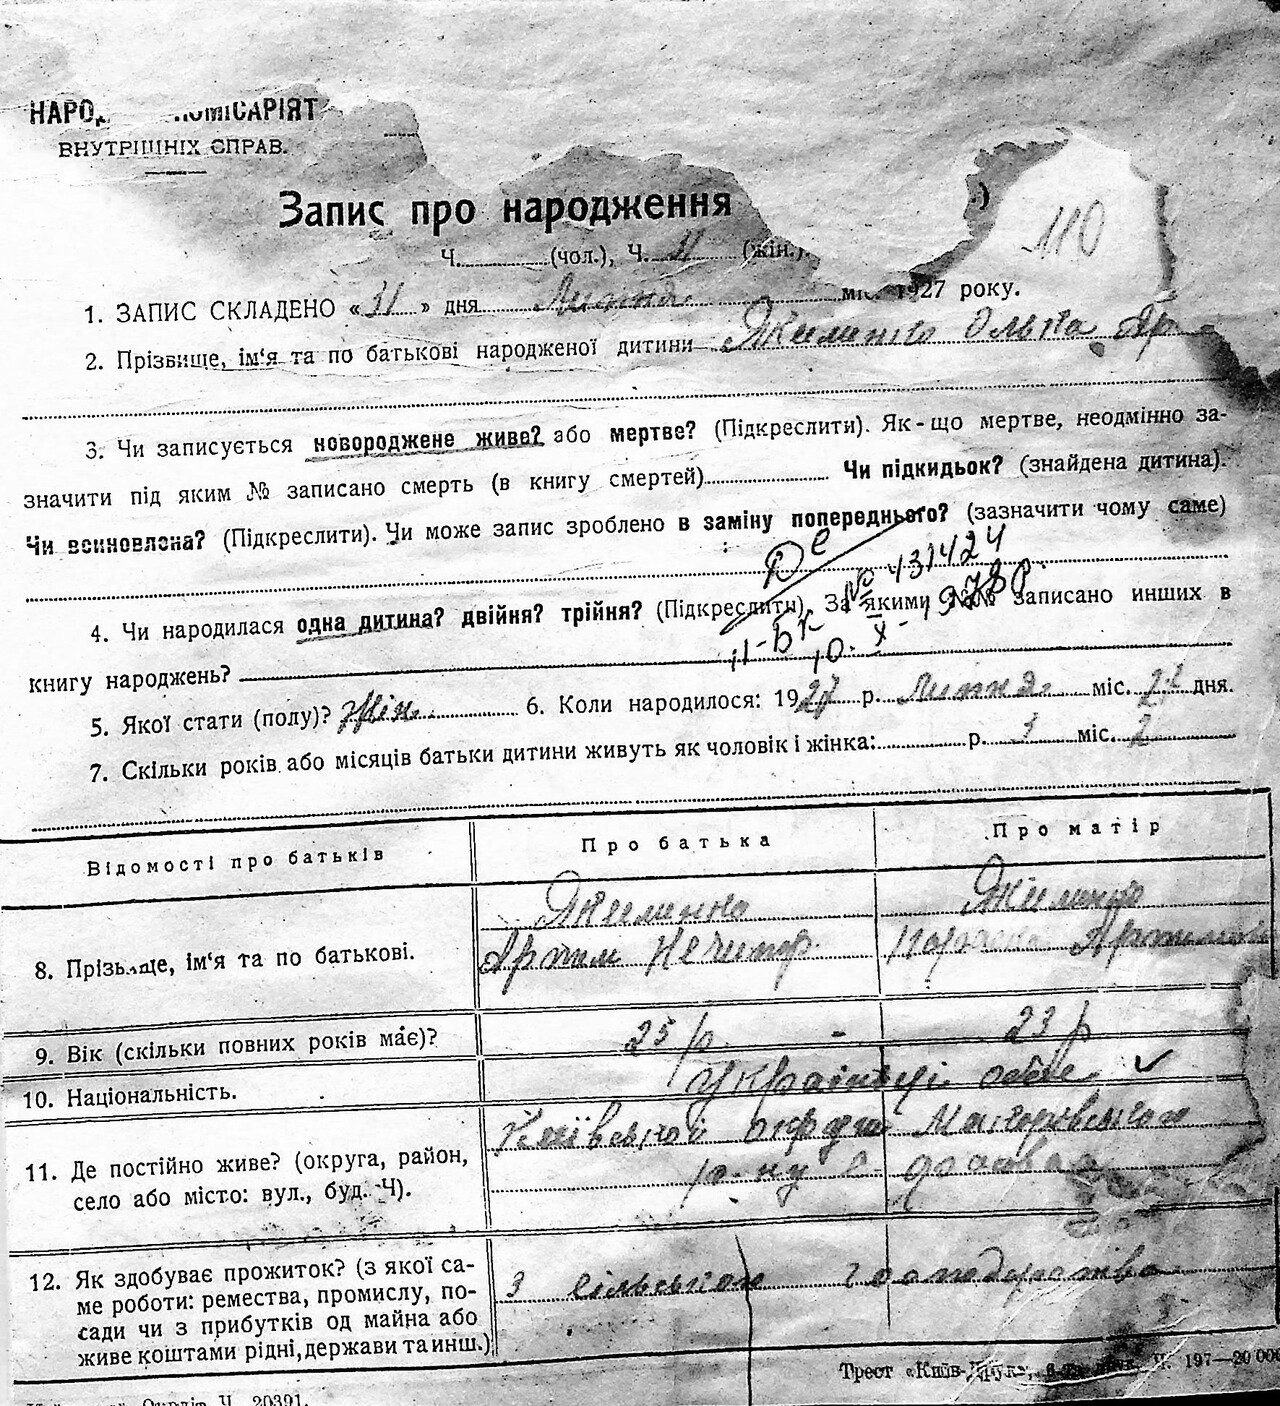 НАРО КОМІСАРІЯТ
ВНУТРІШНІХ СПРАВ.
Запис про народження
110
Ч. (чол.), Ч. 11 (жін.)
1. ЗАПИС СКЛАДЕНО «31» дня міс. 1927 року.
2. Прізвище, ім'я та по батькові народженої дитини Ольга Ар
3. Чи записується новороджене живе? або мертве? (Підкреслити). Як-що мертве, неодмінно за-
значити під яким № записано смерть (в книгу смертей) Чи підкидьок? (знайдена дитина).
Чи всиновлена? (Підкреслити). Чи може запис зроблено в заміну попереднього? (зазначити чому саме)
№ 431424
4. Чи народилася одна дитина? двійня? трійня? (Підкреслити). За якими №№ записано инших в
II-БК 10. X- 1978р.
книгу народжень?
5. Якої стати (полу)? жін. 6. Коли народилося: 1927 р. Липня міс. 22 дня.
7. Скільки років або місяців батьки дитини живуть як чоловік і жінка: р. 1 міс. 2
Відомості про батьків Про батька Про матір
8. Прізвище, ім'я та по батькові.
Артем Нечипор. Параска Артимовна
9. Вік (скільки повних років має)? 25 р. - 23 р
10. Національність. Українці обоє
11. Де постійно живе? (округа, район, Київської округи
село або місто: вул., буд. Ч). р-ну с.
12. Як здобуває прожиток? (з якої са-
ме роботи: ремества, промислу, по- З сільського господарства
сади чи з прибутків од майна або
живе коштами рідні, держави та инш.)
Трест «Київ-Друк», Ч. 197—20 000
Окрліт Ч. 20391.